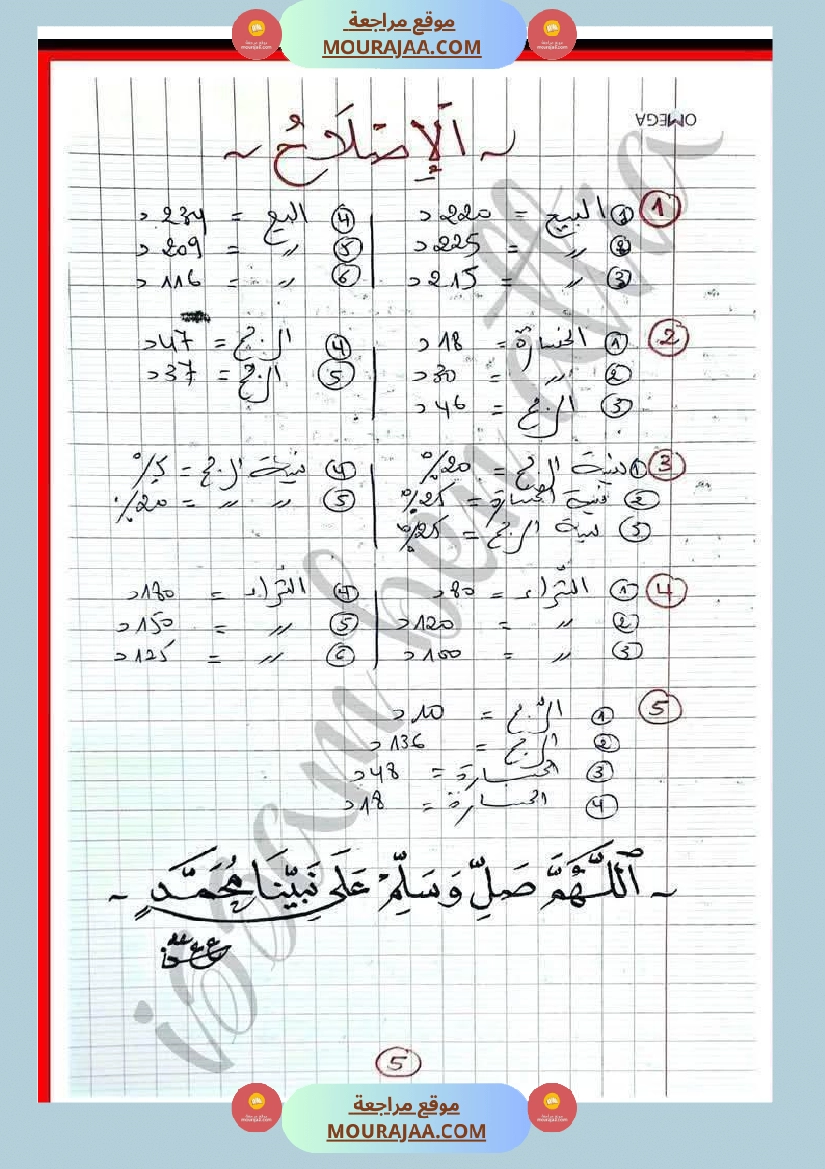 موقع مراجعة
MOURAJAA.COM
OMEGA
~ الْإِصْلَاحُ ~
① ① البيع = 220 د
② 〃 = 225 د
③ 〃 = 215 د
④ البيع = 234 د
⑤ 〃 = 209 د
⑥ 〃 = 116 د
② ① الخسارة = 18 د
② 〃 = 30 د
③ الربح = 46 د
④ الربح = 47 د
⑤ الربح = 37 د
③ ① نسبة الربح = 20%
② نسبة الخسارة = 25%
③ نسبة الربح = 25%
④ نسبة الربح = 5%
⑤ 〃 〃 = 20%
④ ① الشّراء = 80 د
② 〃 = 120 د
③ 〃 = 100 د
④ الشّراء = 180 د
⑤ 〃 = 150 د
⑥ 〃 = 125 د
⑤ ① الرّبح = 10 د
② الربح = 136 د
③ الخسارة = 48 د
④ الخسارة = 18 د
~ اَللَّهُمَّ صَلِّ وَسَلِّمْ عَلَى نَبِيِّنَا مُحَمَّدٍ ~
5
موقع مراجعة
MOURAJAA.COM